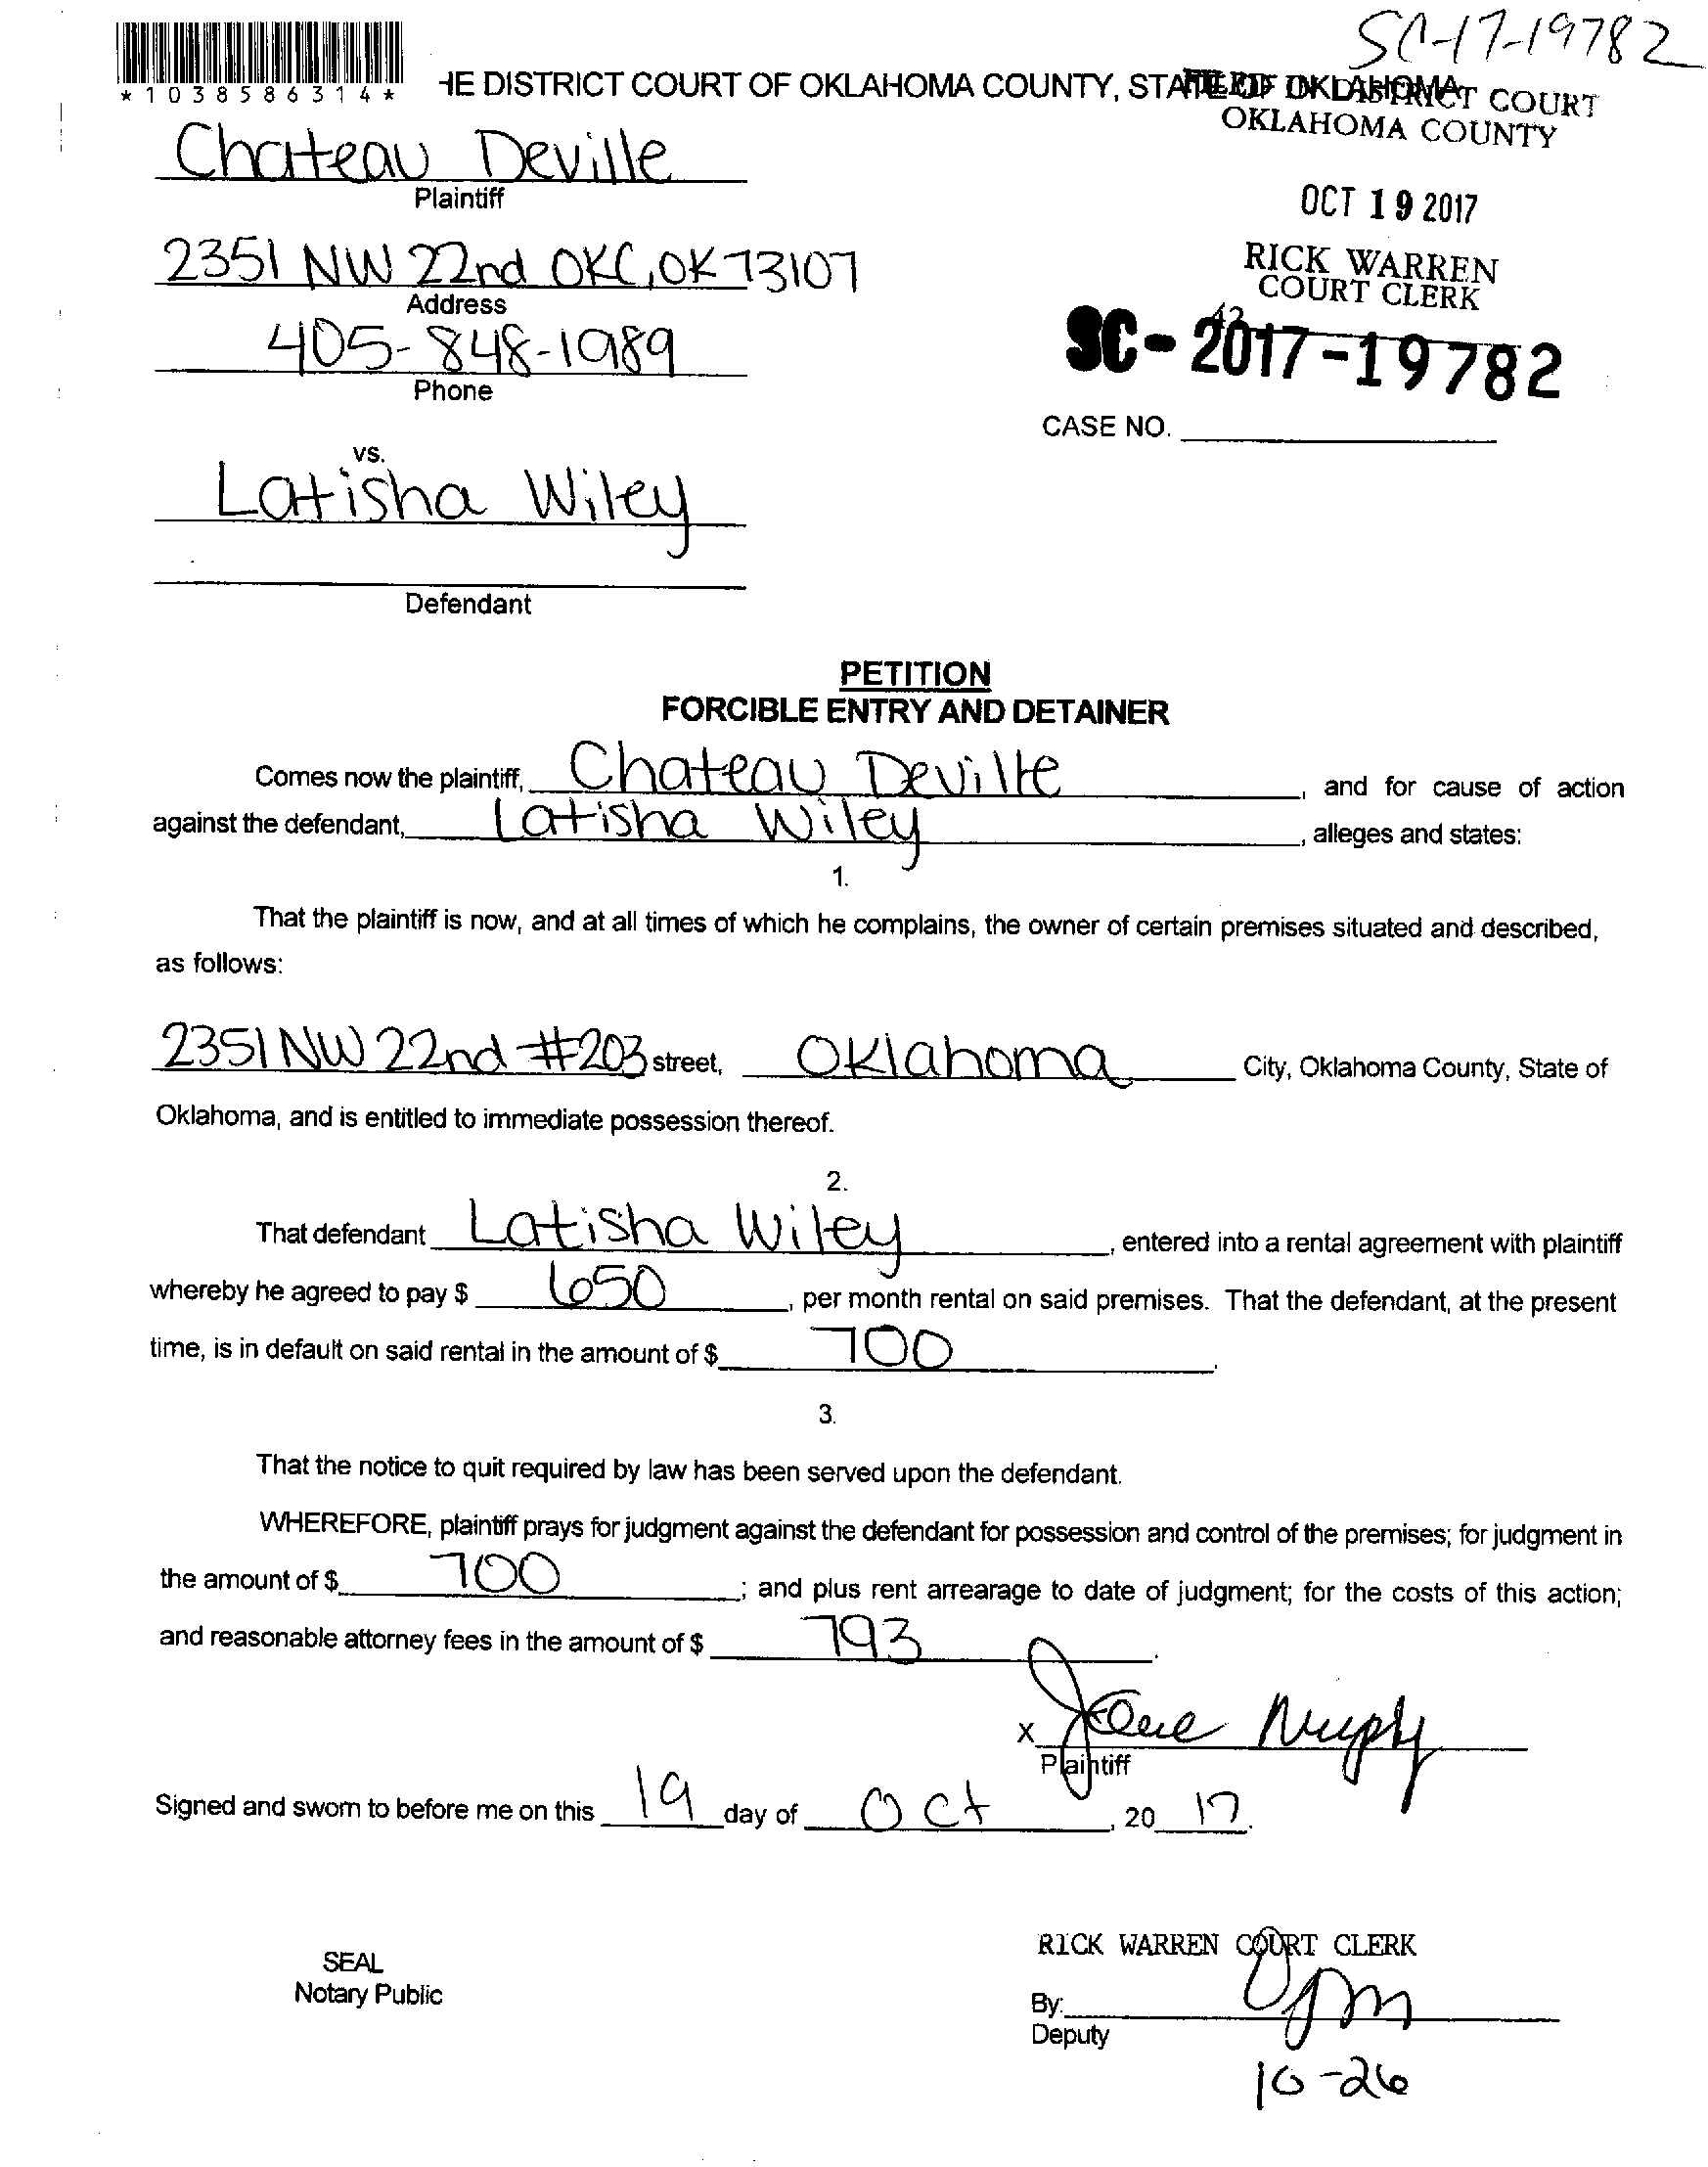 SC-17-19782
*1038586314*
HE DISTRICT COURT OF OKLAHOMA COUNTY, STATE OF OKLAHOMA
FILED IN DISTRICT COURT
OKLAHOMA COUNTY
Chateau Deville
Plaintiff
OCT 19 2017
2351 NW 22nd OKC, OK 73107
Address
RICK WARREN
COURT CLERK
42
405-848-1989
Phone
SC-2017-19782
CASE NO.
vs.
Latisha Wiley
Defendant
PETITION
FORCIBLE ENTRY AND DETAINER
Comes now the plaintiff, Chateau Deville, and for cause of action
against the defendant, Latisha Wiley, alleges and states:
1.
That the plaintiff is now, and at all times of which he complains, the owner of certain premises situated and described,
as follows:
2351 NW 22nd #203 street, Oklahoma City, Oklahoma County, State of
Oklahoma, and is entitled to immediate possession thereof.
2.
That defendant Latisha Wiley, entered into a rental agreement with plaintiff
whereby he agreed to pay $ 650, per month rental on said premises. That the defendant, at the present
time, is in default on said rental in the amount of $ 700.
3.
That the notice to quit required by law has been served upon the defendant.
WHEREFORE, plaintiff prays for judgment against the defendant for possession and control of the premises; for judgment in
the amount of $ 700; and plus rent arrearage to date of judgment; for the costs of this action;
and reasonable attorney fees in the amount of $ 793.
x Jane Murphy
Plaintiff
Signed and sworn to before me on this 19 day of Oct, 20 17.
SEAL
Notary Public
RICK WARREN COURT CLERK
By:
Deputy
10-26